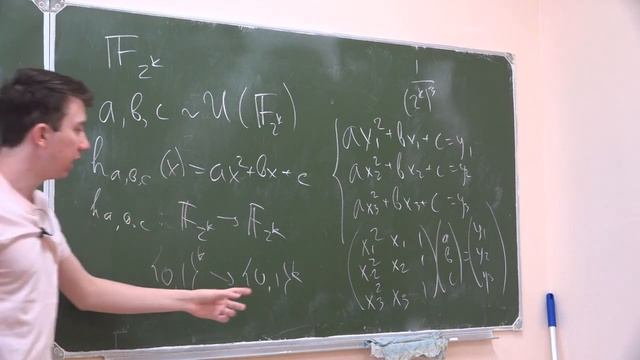 𝔽_{2^k}
a, b, c ~ U(𝔽_{2^k})
h_{a,b,c}(x) = ax² + bx + c
h_{a,b,c} : 𝔽_{2^k} → 𝔽_{2^k}
{0,1}^k → {0,1}^k
1/(2^k)^3
{ ax₁² + bx₁ + c = y₁
ax₂² + bx₂ + c = y₂
ax₃² + bx₃ + c = y₃
(x₁² x₁ 1) (a) = (y₁)
(x₂² x₂ 1) (b) = (y₂)
(x₃² x₃ 1) (c) = (y₃)